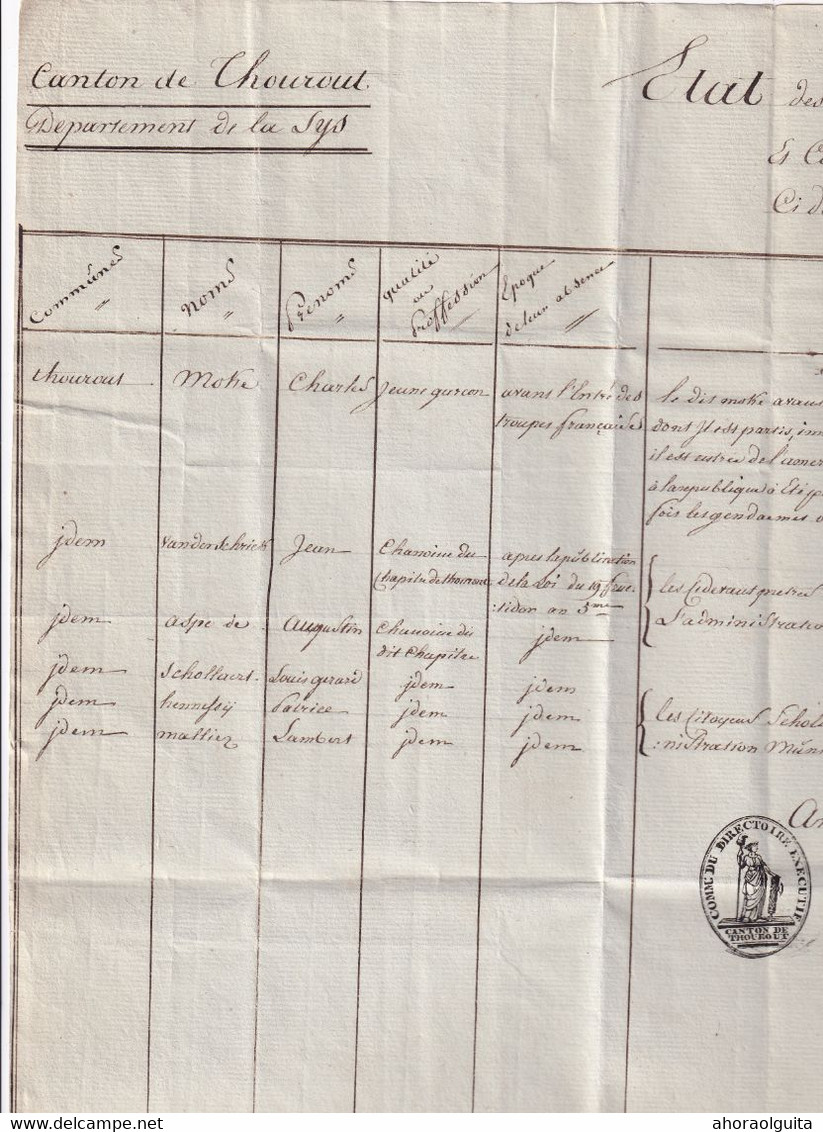 Canton de Thourout
Departement de la Lys
Etat des
Et
Ci d
Communes
Noms
Prenoms
qualité
ou
Proffession
Epoque
de leur absence
thourout Motre Charles Jeune garcon avant l'Entré des
troupes françaises
le dit motre avant
dont Jl est partis,
il est
à la republique à
fois les gendarmes
jdem Jean Chanoine du
Chapitre de thourout
apres lepublication
de la Loi du 19 fruc-
:tidor an 5me
les Cidevant pretres
L'administratio
jdem aspe de Augustin Chanoine du
dit Chapitre
jdem
jdem Schollaert Louis gerard jdem jdem
jdem hennessij Patrice jdem jdem
jdem malliez Lambert jdem jdem
les Citoyens Schol
:nistration Muni
COMMre DU DIRECTOIRE EXECUTIF
CANTON DE
THOUROUT
ahoraolguita